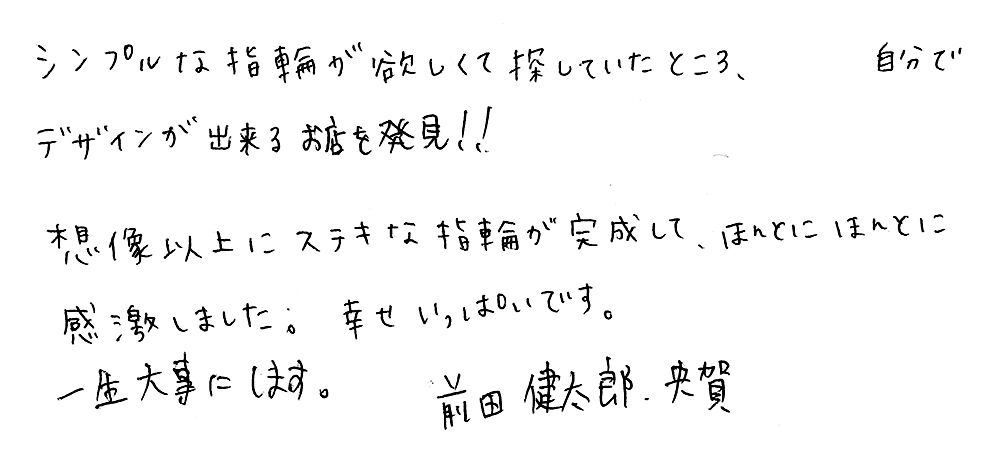 シンプルな指輪が欲しくて探していたところ、 自分で
デザインが出来るお店を発見!!
想像以上にステキな指輪が完成して、ほんとにほんとに
感激しました。 幸せいっぱいです。
一生大事にします。 前田 健太郎.央賀